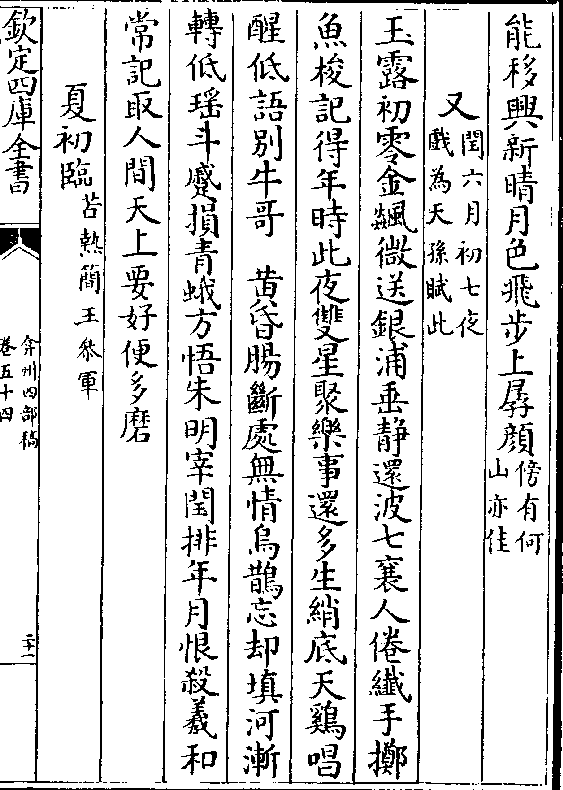 能移興新晴月色飛步上孱顔傍有何山亦佳
又閏六月初七夜戲為天孫賦此
玉露初零金飇微送銀浦垂静還波七襄人倦纎手擲
魚梭記得年時此夜雙星聚樂事還多生綃底天鷄唱
醒低語別牛哥　黄昏腸斷處無情烏鵲忘却填河漸
轉低瑶斗蹙損青蛾方悟朱明宰閏排年月恨殺羲和
常記取人間天上要好便多磨
夏初臨苦熱簡王叅軍
欽定四庫全書
弇州四部稿
卷五十四
二十一